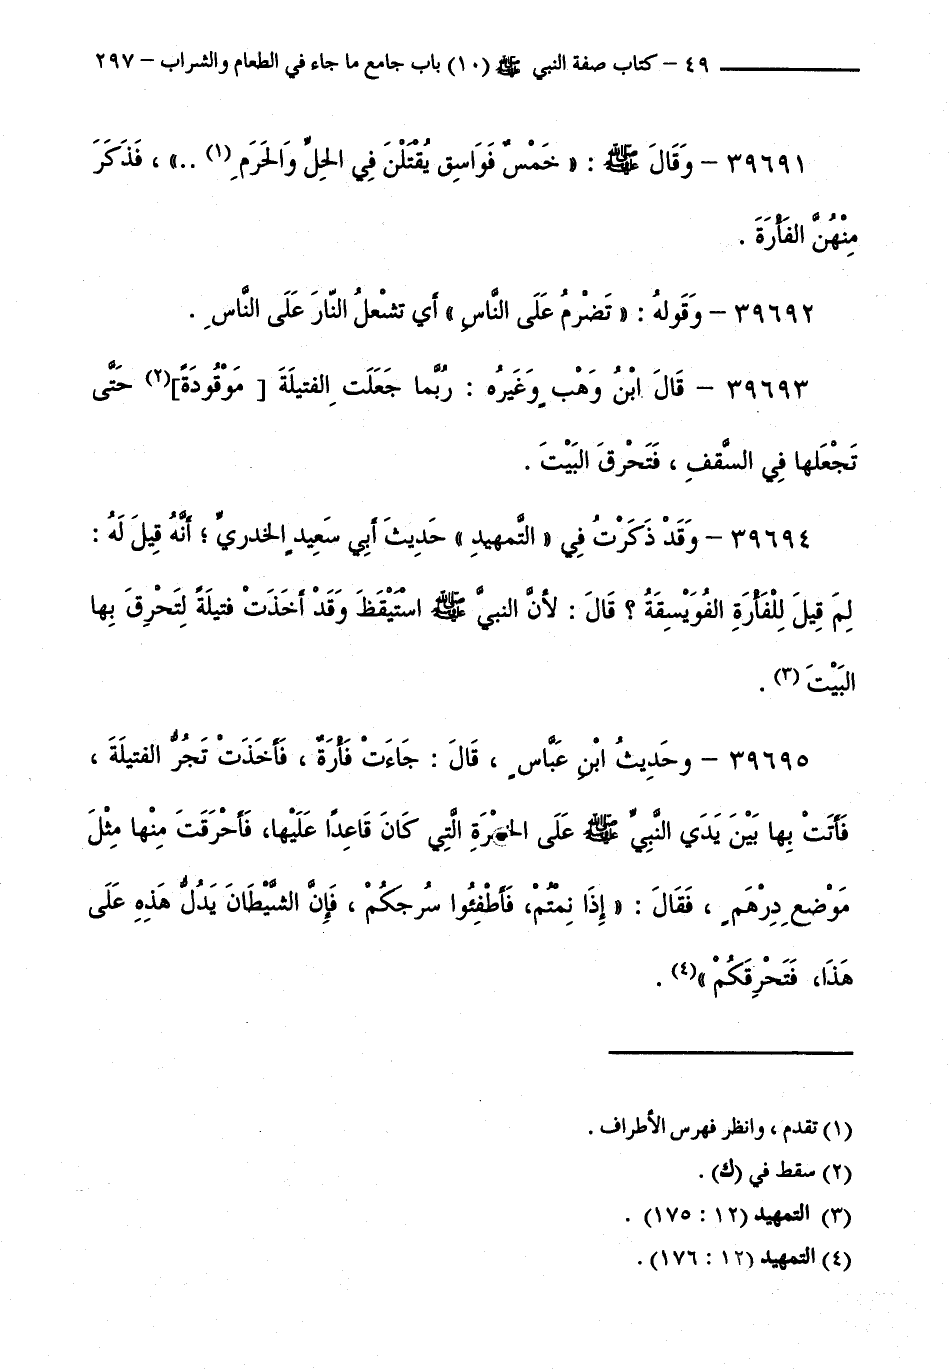 ٤٩ – كتاب صفة النبي ﷺ (١٠) باب جامع ما جاء في الطعام والشراب – ٢٩٧
٣٩٦٩١ – وَقَالَ ﷺ : « خَمْسٌ فَوَاسِق يُقْتَلْنَ فِي الحِلِّ وَالحَرَمِ (١) ..» ، فَذَكَرَ
مِنْهُنَّ الفَأْرَةَ .
٣٩٦٩٢ – وَقَولهُ : « تَضْرِمُ عَلَى النَّاسِ » أي تشْعلُ النّارَ عَلَى النَّاسِ .
٣٩٦٩٣ – قَالَ ابْنُ وَهْبٍ وَغَيرُه : رُبُّما جَعَلَت الفتيلَةَ [ مَوْقُودَةً](٢) حَتَّى
تَجْعَلها فِي السَّقفِ ، فَتَحْرقَ البَيْتَ .
٣٩٦٩٤ – وَقَدْ ذَكَرَتُ فِي « التَّمهيدِ » حَديثَ أبي سَعِيدٍ الخدريِّ ؛ أنَّهُ قِيلَ لَهُ :
لِمَ قِيلَ لِلْفَأرَةِ الفُوَيْسِقَةُ ؟ قَالَ : لأنَّ النبيَّ ﷺ اسْتَيْقَظَ وَقَدْ أخَذَتْ فتيلَةً لِتَحْرِقَ بِها
البَيْتَ (٣) .
٣٩٦٩٥ – وحَديثُ ابْنِ عَبَّاسٍ ، قَالَ : جَاءَتْ فَأْرَةٌ ، فَأَخَذَتْ تَجرُّ الفتيلَةَ ،
فَأَتَتْ بِها بَيْنَ يَدَي النَّبِيِّ ﷺ عَلَى الخمْرَةِ الَّتِي كَانَ قَاعِدًا عَلَيْها، فَأَحْرَقَتَ مِنْها مثْلَ
مَوْضعِ دِرْهَمٍ ، فَقَالَ : « إِذَا نِمْتُمْ، فَأَطْفِئُوا سُرجكُمْ ، فَإِنَّ الشَّيْطَانَ يَدُلُّ هَذِهِ عَلَى
هَذَا، فَتَحْرِقَكُمْ »(٤) .
(١) تقدم ، وانظر فهرس الأطراف .
(٢) سقط في (ك) .
(٣) التمهيد (١٢ : ١٧٥) .
(٤) التمهيد (١٢ : ١٧٦) .